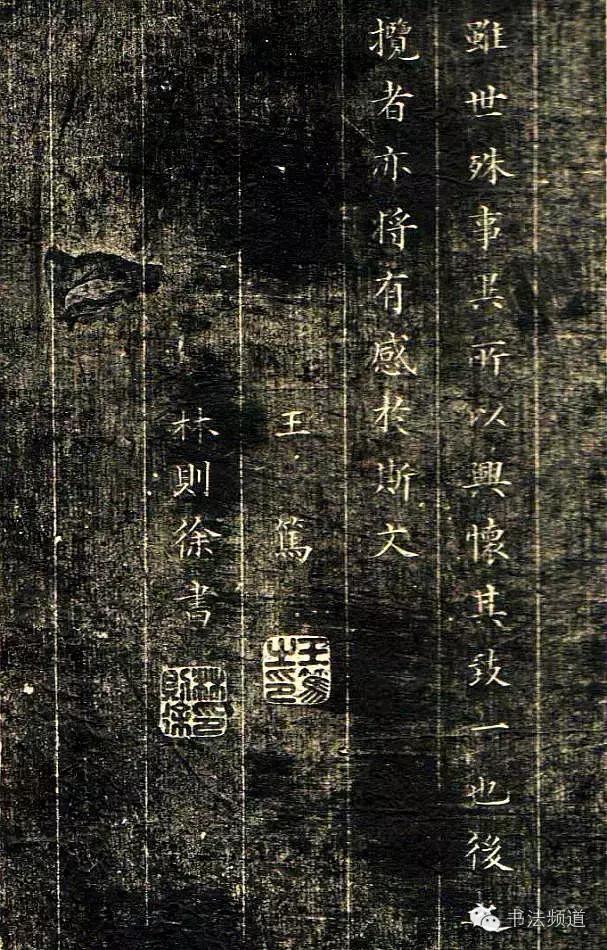 雖世殊事異所以興懷其致一也後
攬者亦將有感於斯文
王篤
王篤之印
林則徐書
林印則徐
书法频道